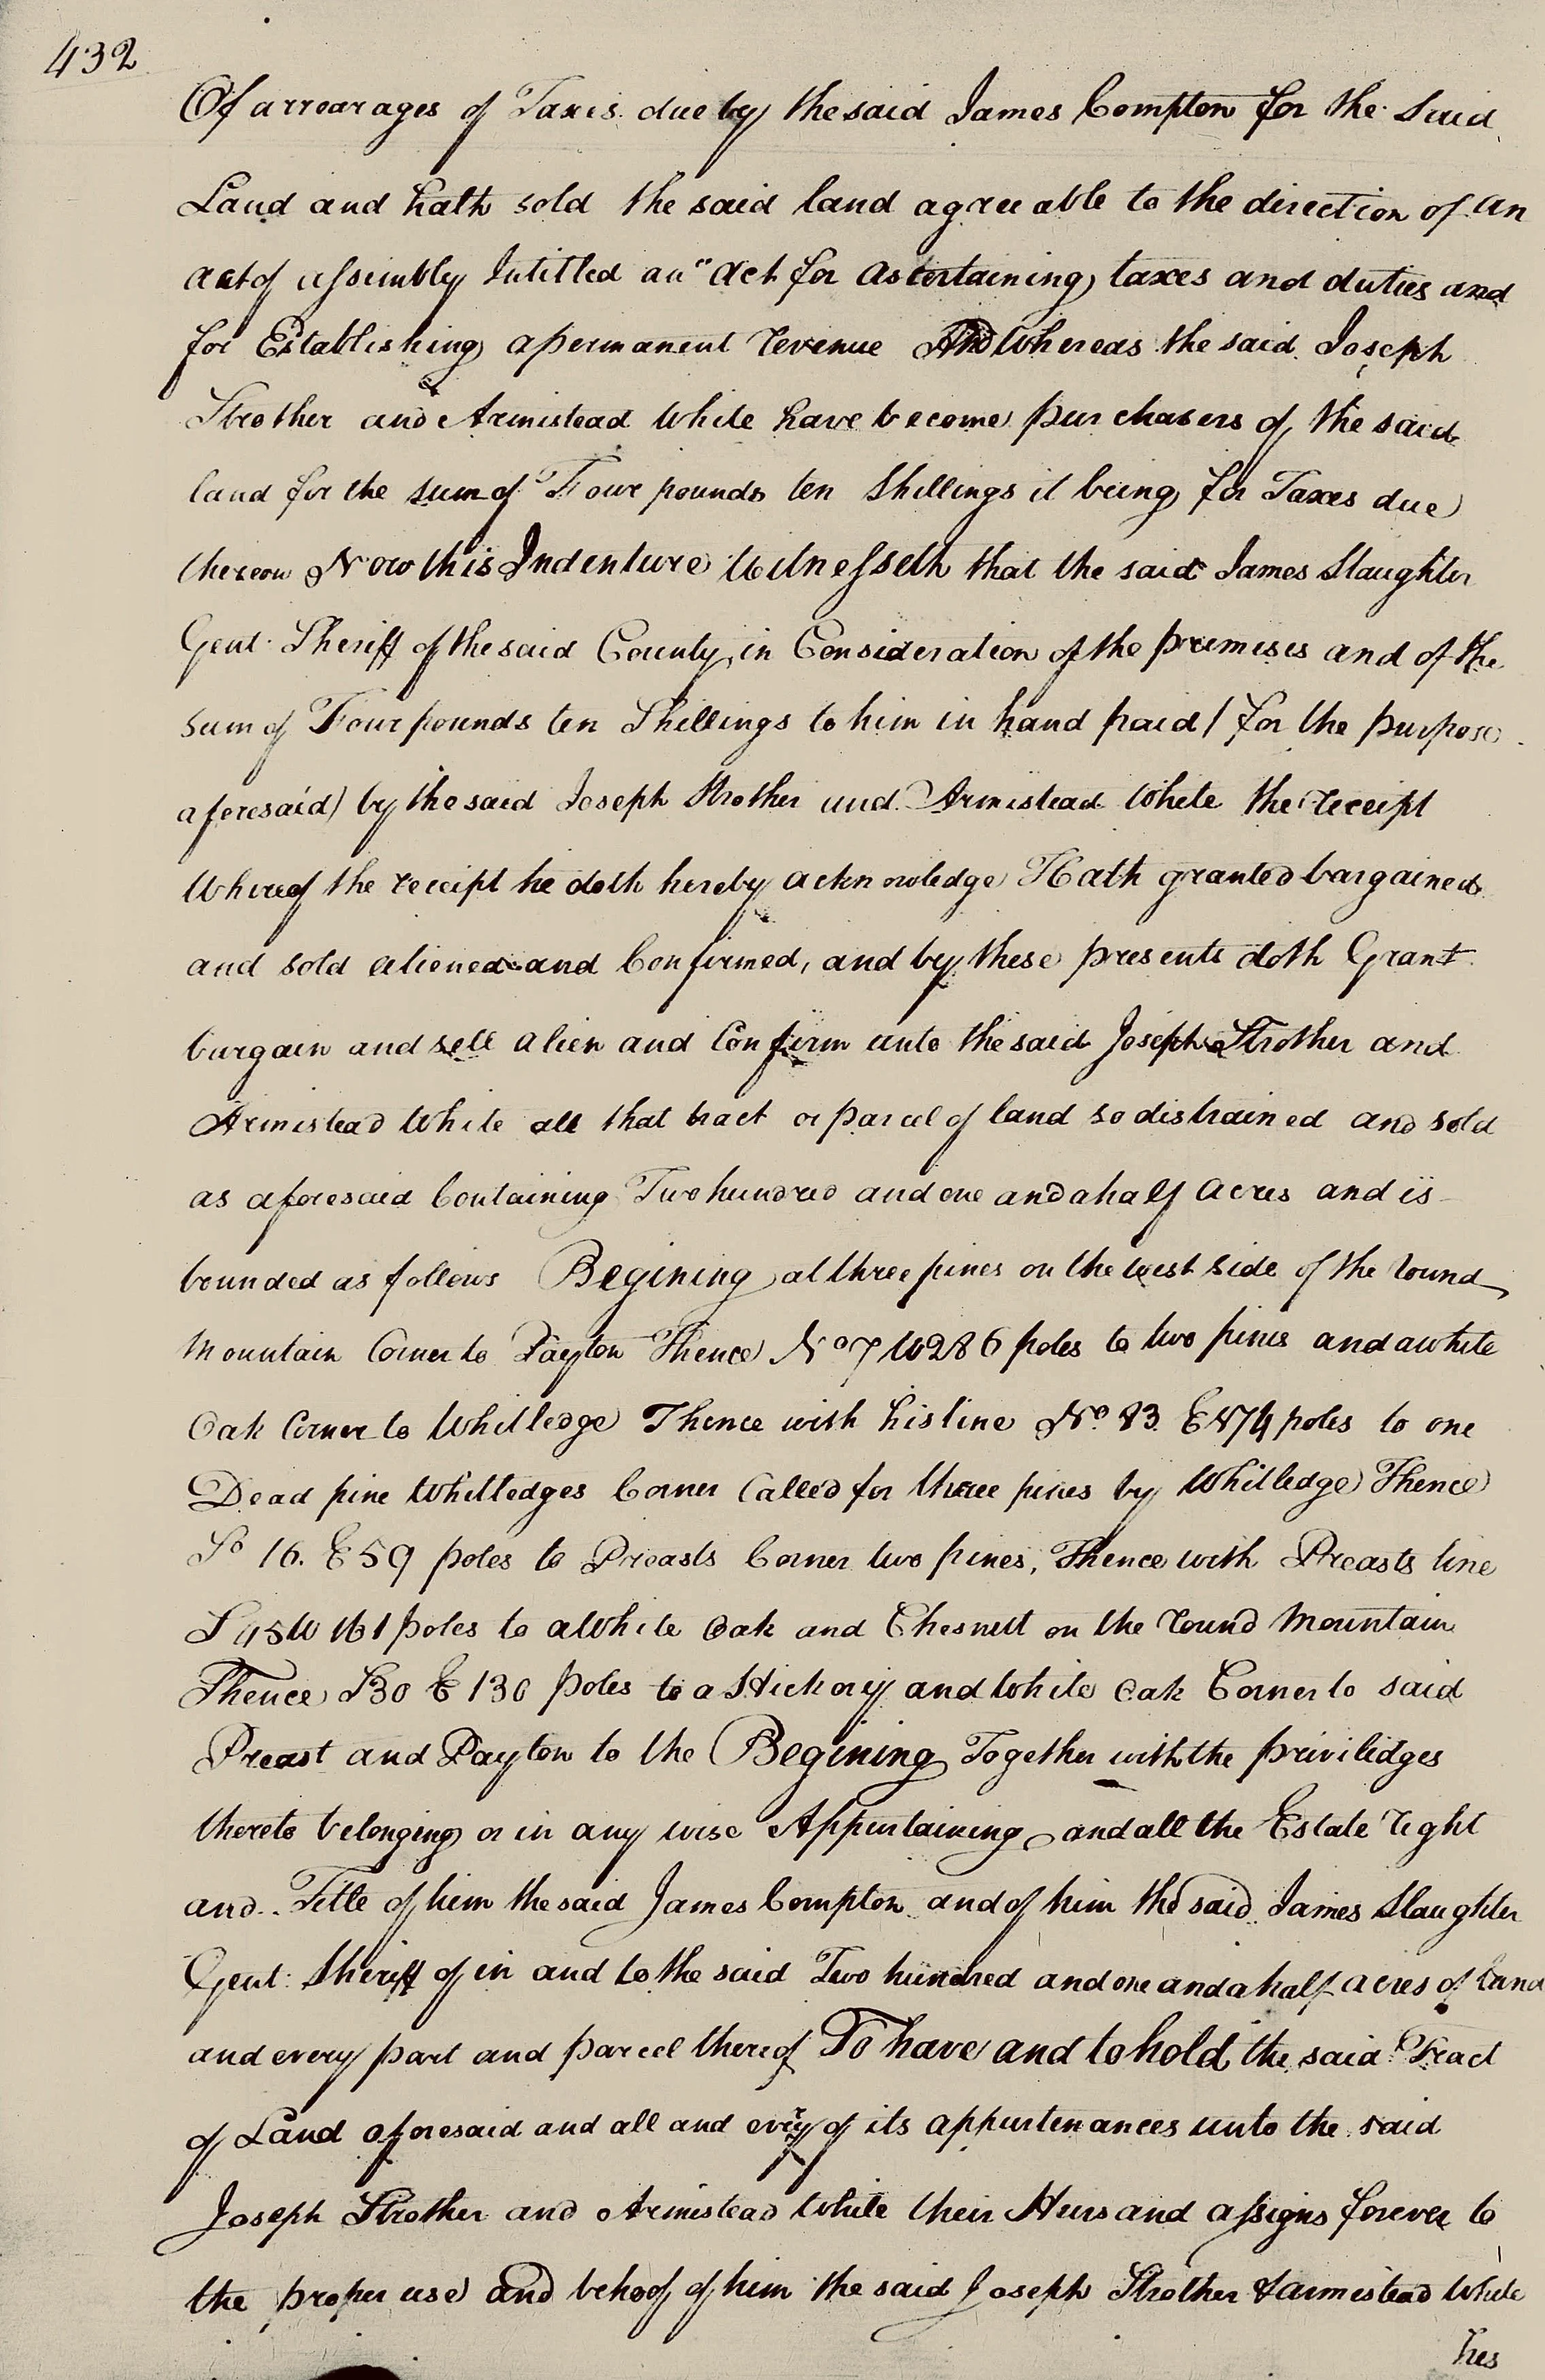 432
Of arrearages of Taxes due by the said James Compton for the Said
Land and hath sold the said land agreeable to the direction of an
act of assembly Intitled an "Act for ascertaining taxes and duties and
for Establishing a permanent revenue And Whereas the said Joseph
Strother and Armistead White have become purchasers of the said
land for the sum of Four pounds ten Shillings it being for Taxes due
thereon Now this Indenture Witnesseth that the said James Slaughter
Gent. Sheriff of the said County in Consideration of the premises and of the
sum of Four pounds ten Shillings to him in hand paid / for the purpose
aforesaid) by the said Joseph Strother and Armistead White the receipt
Whereof the receipt he doth hereby acknowledge Hath granted bargained
and sold aliened and Confirmed, and by these presents doth Grant
bargain and sell alien and Confirm unto the said Joseph Strother and
Armistead White all that tract or parcel of land so distrained and sold
as aforesaid Containing Two hundred and one and a half acres and is
bounded as follows Begining at three pines on the west side of the round
Mountain Corner to Payton Thence No 7 W 286 poles to two pines and a white
Oak Corner to Whitledge Thence with his line No. 83 E 174 poles to one
Dead pine Whitledges Corner Called for three pines by Whitledge Thence
So 16. E 59 poles to Preasts Corner two pines, Thence with Preasts line
S 45 W 161 poles to a White Oak and Chesnutt on the round Mountain
Thence S 30 E 130 poles to a Hickory and White Oak Corner to said
Preast and Payton to the Begining Together with the priviledges
thereto belonging or in any wise Appertaining and all the Estate right
and Title of him the said James Compton and of him the said James Slaughter
Gent: Sheriff of in and to the said Two hundred and one and a half acres of land
and every part and parcel thereof To have and to hold the said Tract
of Land aforesaid and all and every of its appurtenances unto the said
Joseph Strother and Armistead White their Heirs and assigns forever to
the proper use and behoof of him the said Joseph Strother & armistead White
his